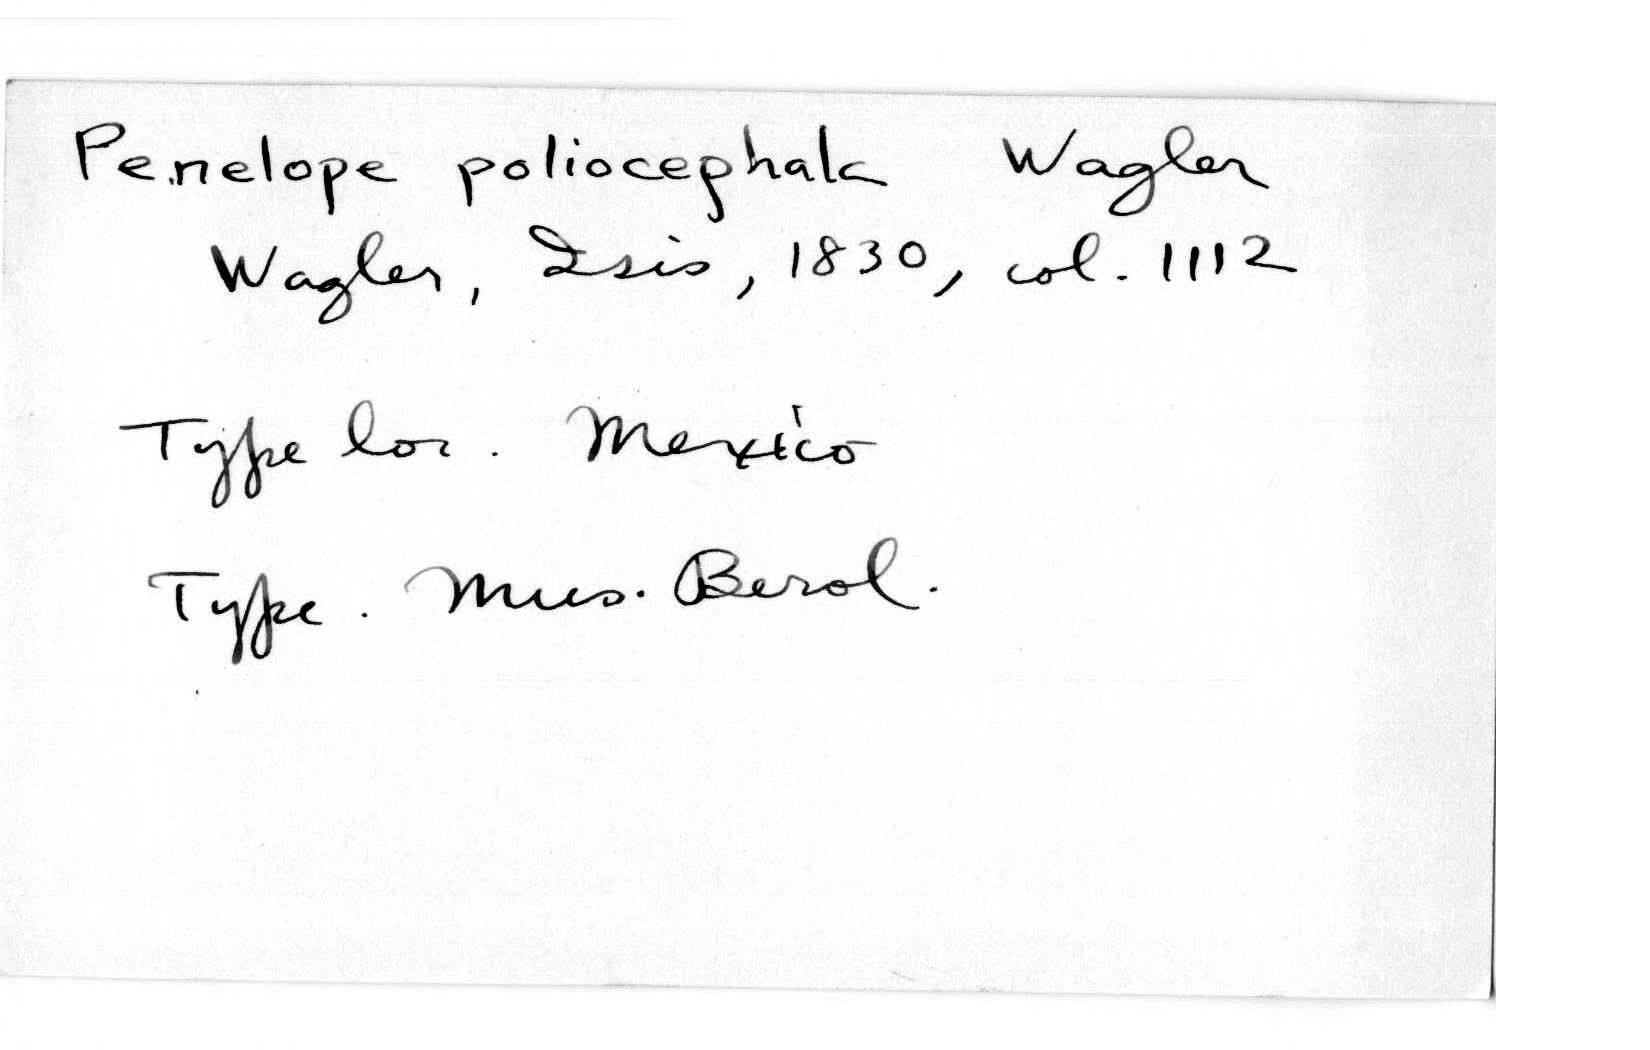 Penelope poliocephala Wagler
Wagler, Isis, 1830, col. 1112
Type loc. Mexico
Type. Mus. Berol.